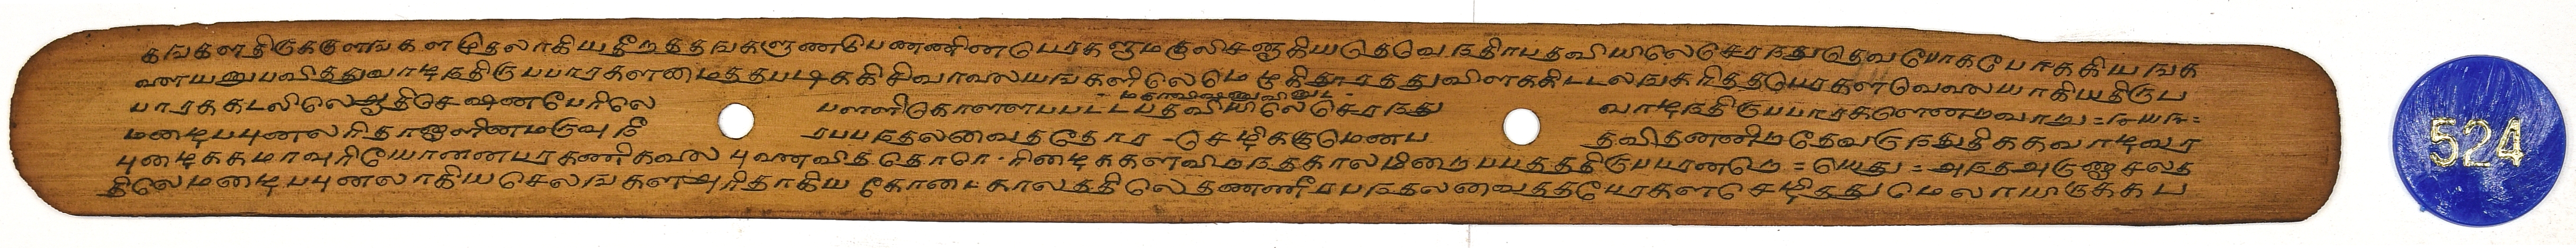 கஙகளதிருககுளஙகளமுதலாகியதீறததஙகளுணடுபணணினபெரகளுமகுலிசனுகியதெவெநதிரபதவியிலெசெரநதுதெவபோகபோககியஙக
ளையனுபவிததுவாழநதிருபபாரகளமைததபடிககிசிவாலையஙகளிலெமெழுகிதூரததுவிளககிடடலஙகரிததபெரகளவெலையாகியதிருப
மகாவிஷணுவினுட
பாறகடலிலெஆதிசெஷணபேரிலெ பளளிகொளளபபடடபதவியிலெசெரநது வாழநதிருபபாரகளெணமவாறு = ௩௰௩ =
மடைபபுனலரிதாஞளினமருவுநீ ரபபநதலவைததோர - செழிககுமெணப தவிதணணிமதேவருநதுதிககவாழவர
புடைககமாவுரியோனனபரகணிகவல - ரிடைககளவிறநதகாலமிறைபபதததிருபபரணறெ = எயது = அநதஅருணுசலத
திலெமடைபபுனலாகியசெலஙகளஅரிதாகியகோடைகாலததிலெதணணீரபநதலவைததபேரகளசெழிததுமெலாயிருககப
524